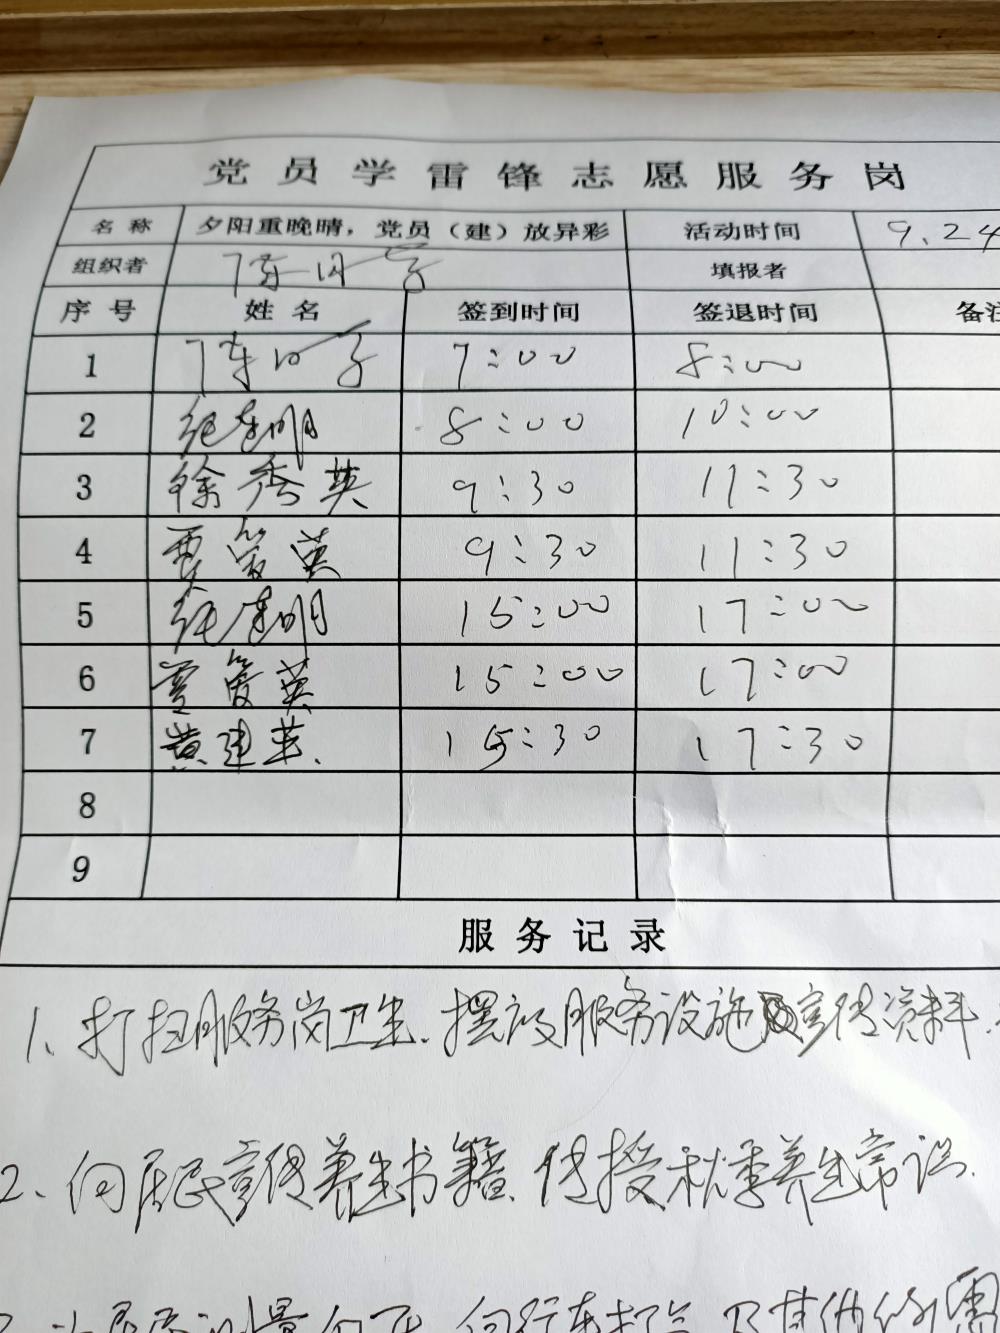 党员学雷锋志愿服务岗
名称 夕阳重晚晴，党员（建）放异彩 活动时间 9.24
组织者 填报者
序号 姓名 签到时间 签退时间 备注
1 7:00 8:00
2 8:00 10:00
3 徐秀英 9:30 11:30
4 贾爱英 9:30 11:30
5 15:00 17:00
6 贾爱英 15:00 17:00
7 黄建英 15:30 17:30
8
9
服务记录
1、打扫服务岗卫生、摆放服务设施 宣传资料、
2、向居民宣传养生书籍、传授秋季养生常识、
测量血压